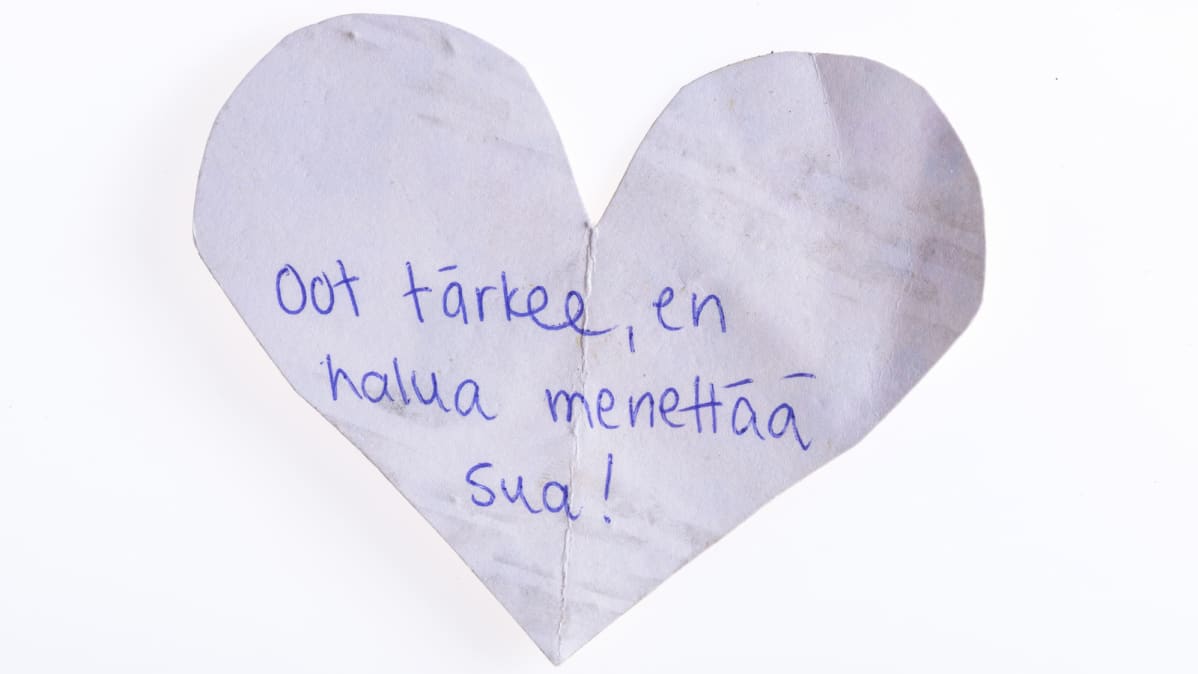 Oot tärkee, en
halua menettää
sua!